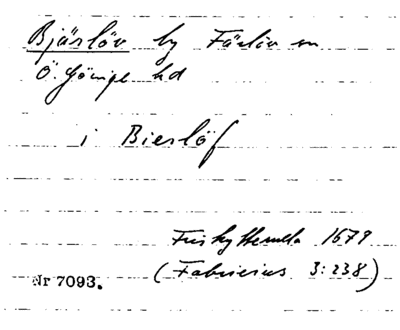 Bjärlöv by Färlöv sn
Ö. Göinge hd
i Bierlöf
Friskyttemla 1679
(Fabricius 3:238)
Nr 7093.